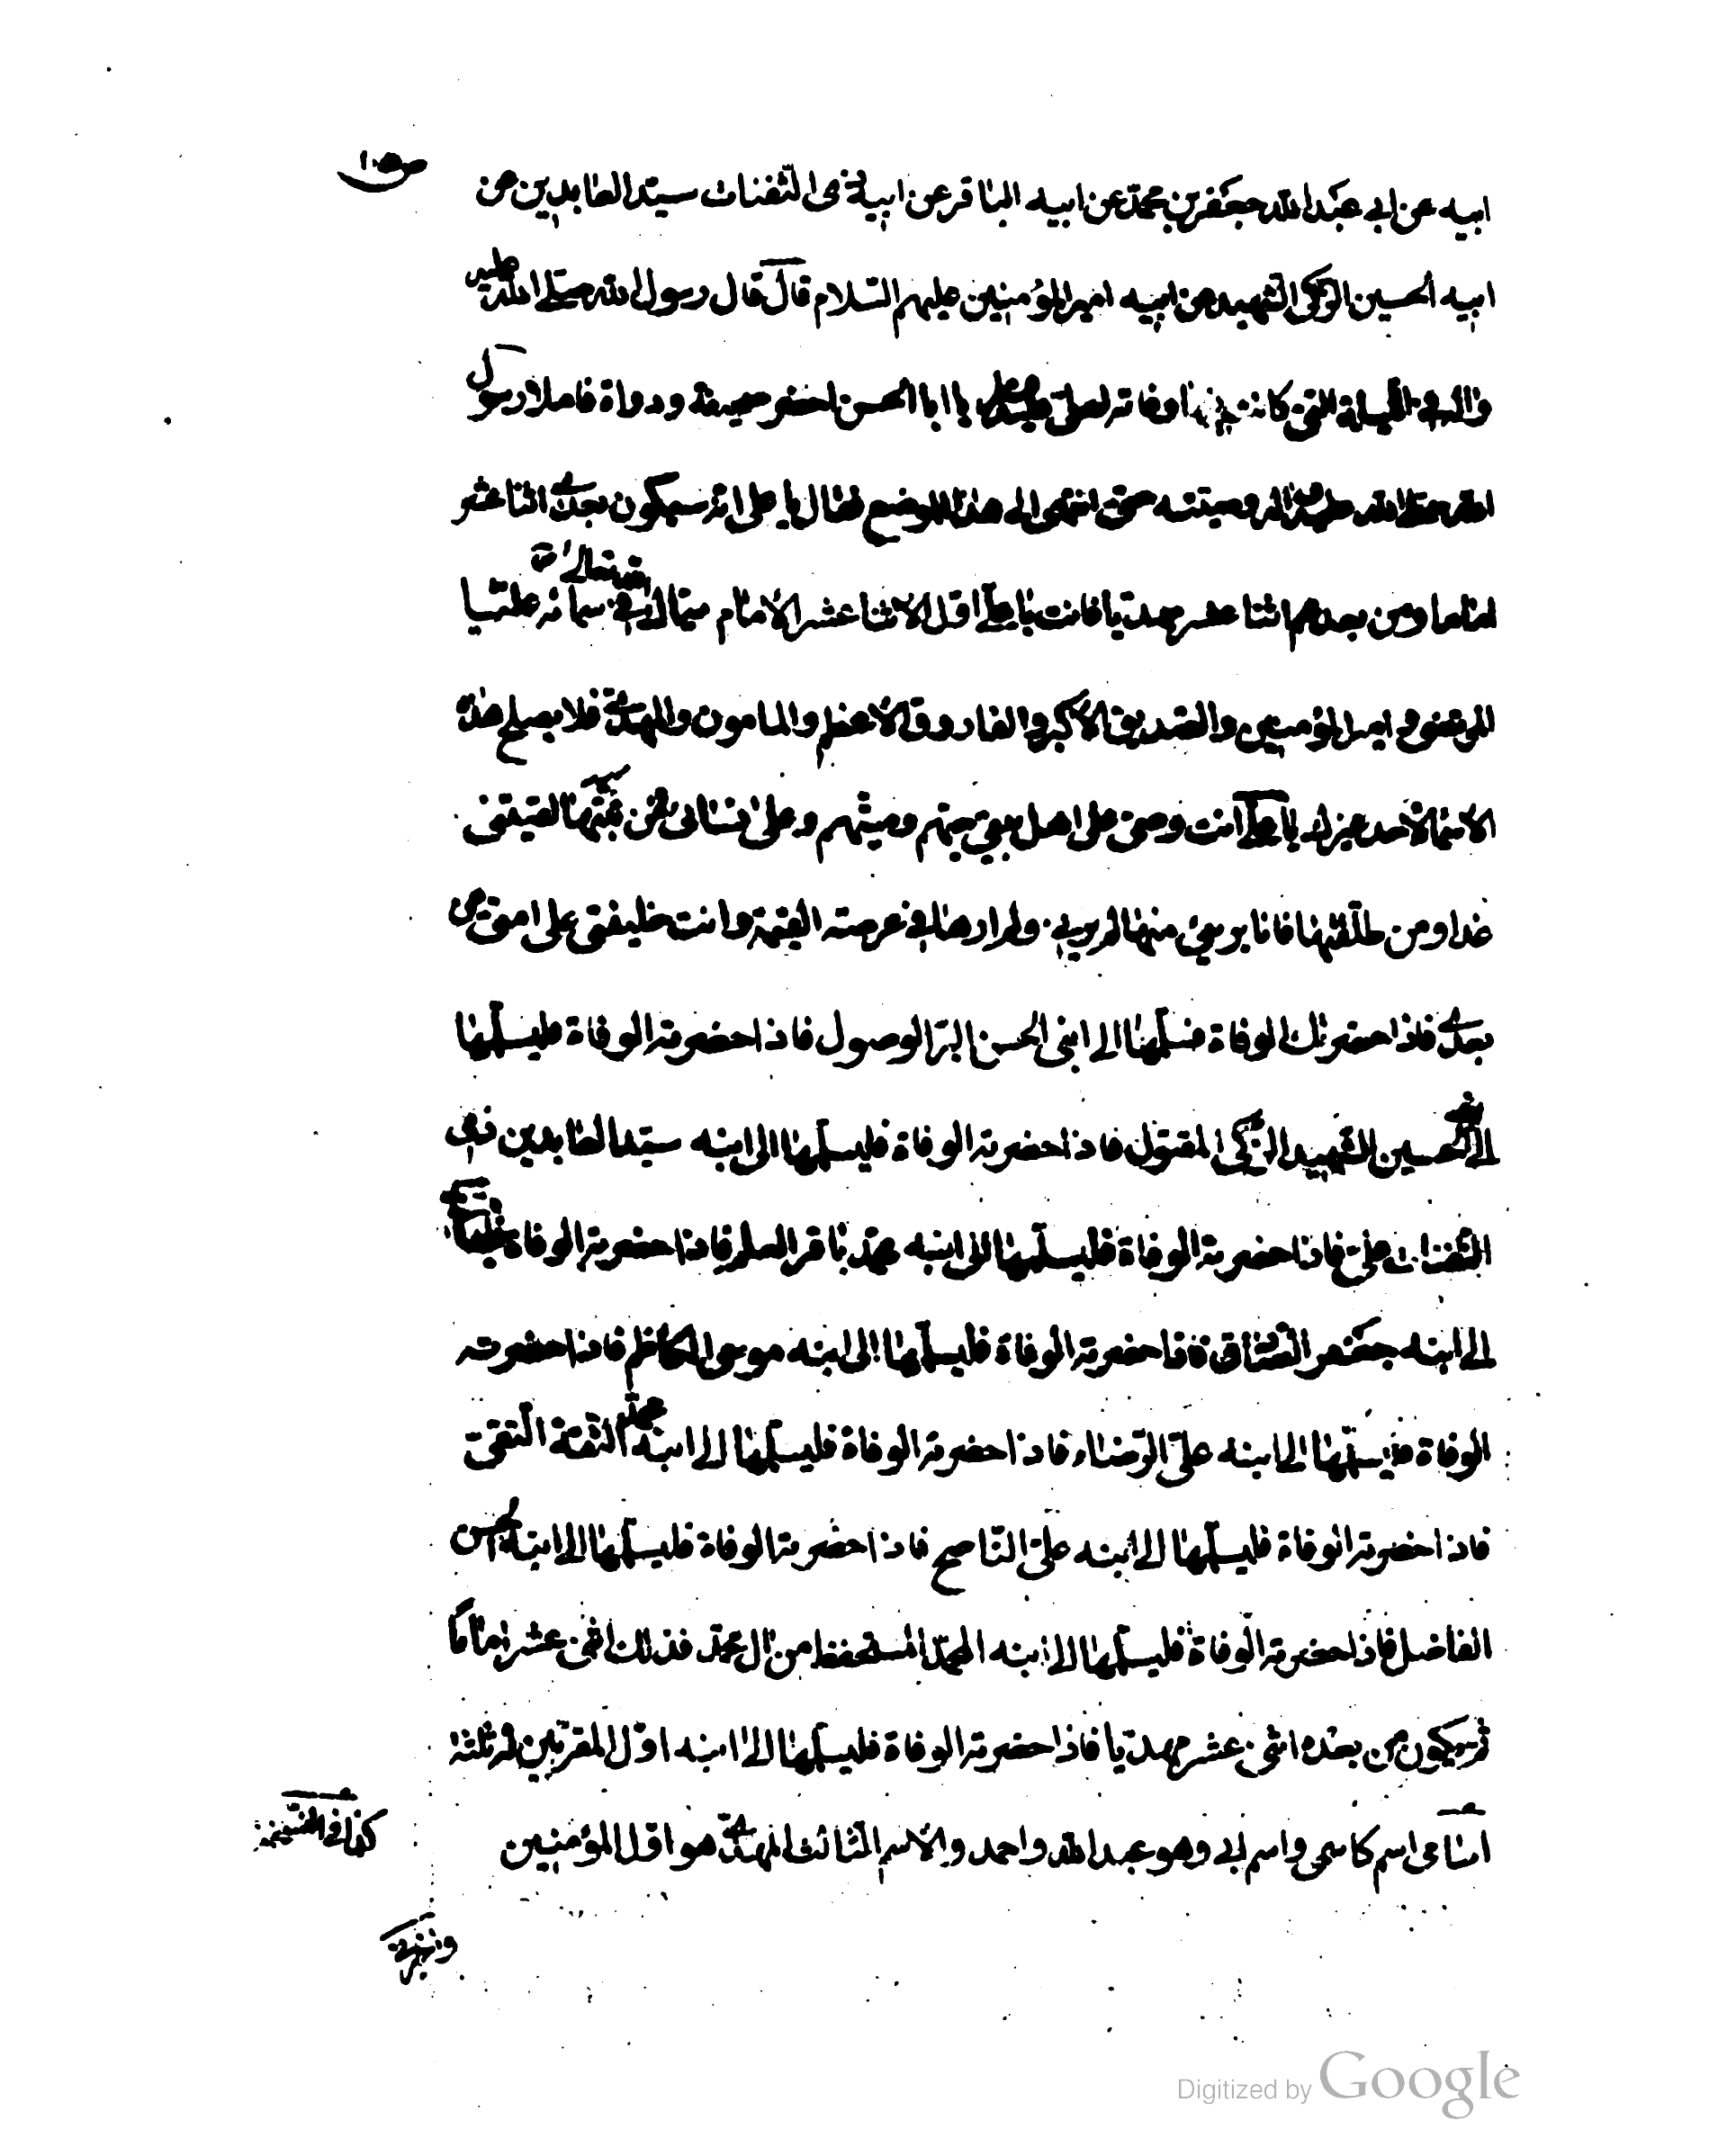 ص١٠٥
ابيه عن ابي عبد الله جعفر بن محمد عن ابيه الباقر عن ابيه ذى الثفنات سيد العابدين عن
ابيه الحسين الزكى الشهيد عن ابيه امير المؤمنين عليهم السلام قال قال رسول الله صلى الله عليه
واله فى الليلة التى كانت فيها وفاته لعلى عليه السلام يا ابا الحسن احضر صحيفة ودواة فاملا رسول
الله صلى الله عليه واله وصيته حتى انتهى الى هذا الموضع فقال يا على انه سيكون بعدى اثنا عشر
اماما ومن بعدهم اثنا عشر مهديا فانت يا على اول الاثنا عشر الامام سماك الله تعالى فى سمائه عليا
المرتضى و امير المؤمنين والصديق الاكبر والفاروق الاعظم والمامون والمهدى فلا يصلح هذه
الاسماء لاحد غيرك يا على انت وصى على اهل بيتى حيهم وميتهم وعلى نسائى فمن ثبتها لقيتنى
غدا ومن طلقتها فانا برىء منها لم يرنى ولم ارها فى عرصة القيمة وانت خليفتى على امتى من
بعدى فاذا حضرتك الوفاة فسلمها الى ابنى الحسن البر الوصول فاذا حضرته الوفاة فليسلمها
الى ابنى الحسين الشهيد الزكى المقتول فاذا حضرته الوفاة فليسلمها الى ابنه سيد العابدين ذى
الثفنات على فاذا حضرته الوفاة فليسلمها الى ابنه محمد باقر العلم فاذا حضرته الوفاة فليسلمها
الى ابنه جعفر الصادق فاذا حضرته الوفاة فليسلمها الى ابنه موسى الكاظم فاذا حضرته
الوفاة فليسلمها الى ابنه على الرضاء فاذا حضرته الوفاة فليسلمها الى ابنه محمد الثقة التقى
فاذا حضرته الوفاة فليسلمها الى ابنه على الناصح فاذا حضرته الوفاة فليسلمها الى ابنه الحسن
الفاضل فاذا حضرته الوفاة فليسلمها الى ابنه محمد المستحفظ من ال محمد فذلك اثنى عشر اماما
ثم يكون من بعده اثنى عشر مهديا فاذا حضرته الوفاة فليسلمها الى ابنه اول المقربين له ثلثة
اسامى اسم كاسمى واسم ابى وهو عبد الله واحمد والاسم الثالث المهدى هو اول المؤمنين
كذا فى النسخة
Digitized by Google